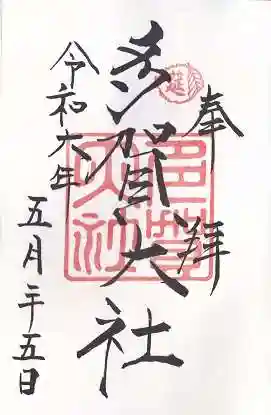 奉拝
多賀大社
令和六年
五月二十五日